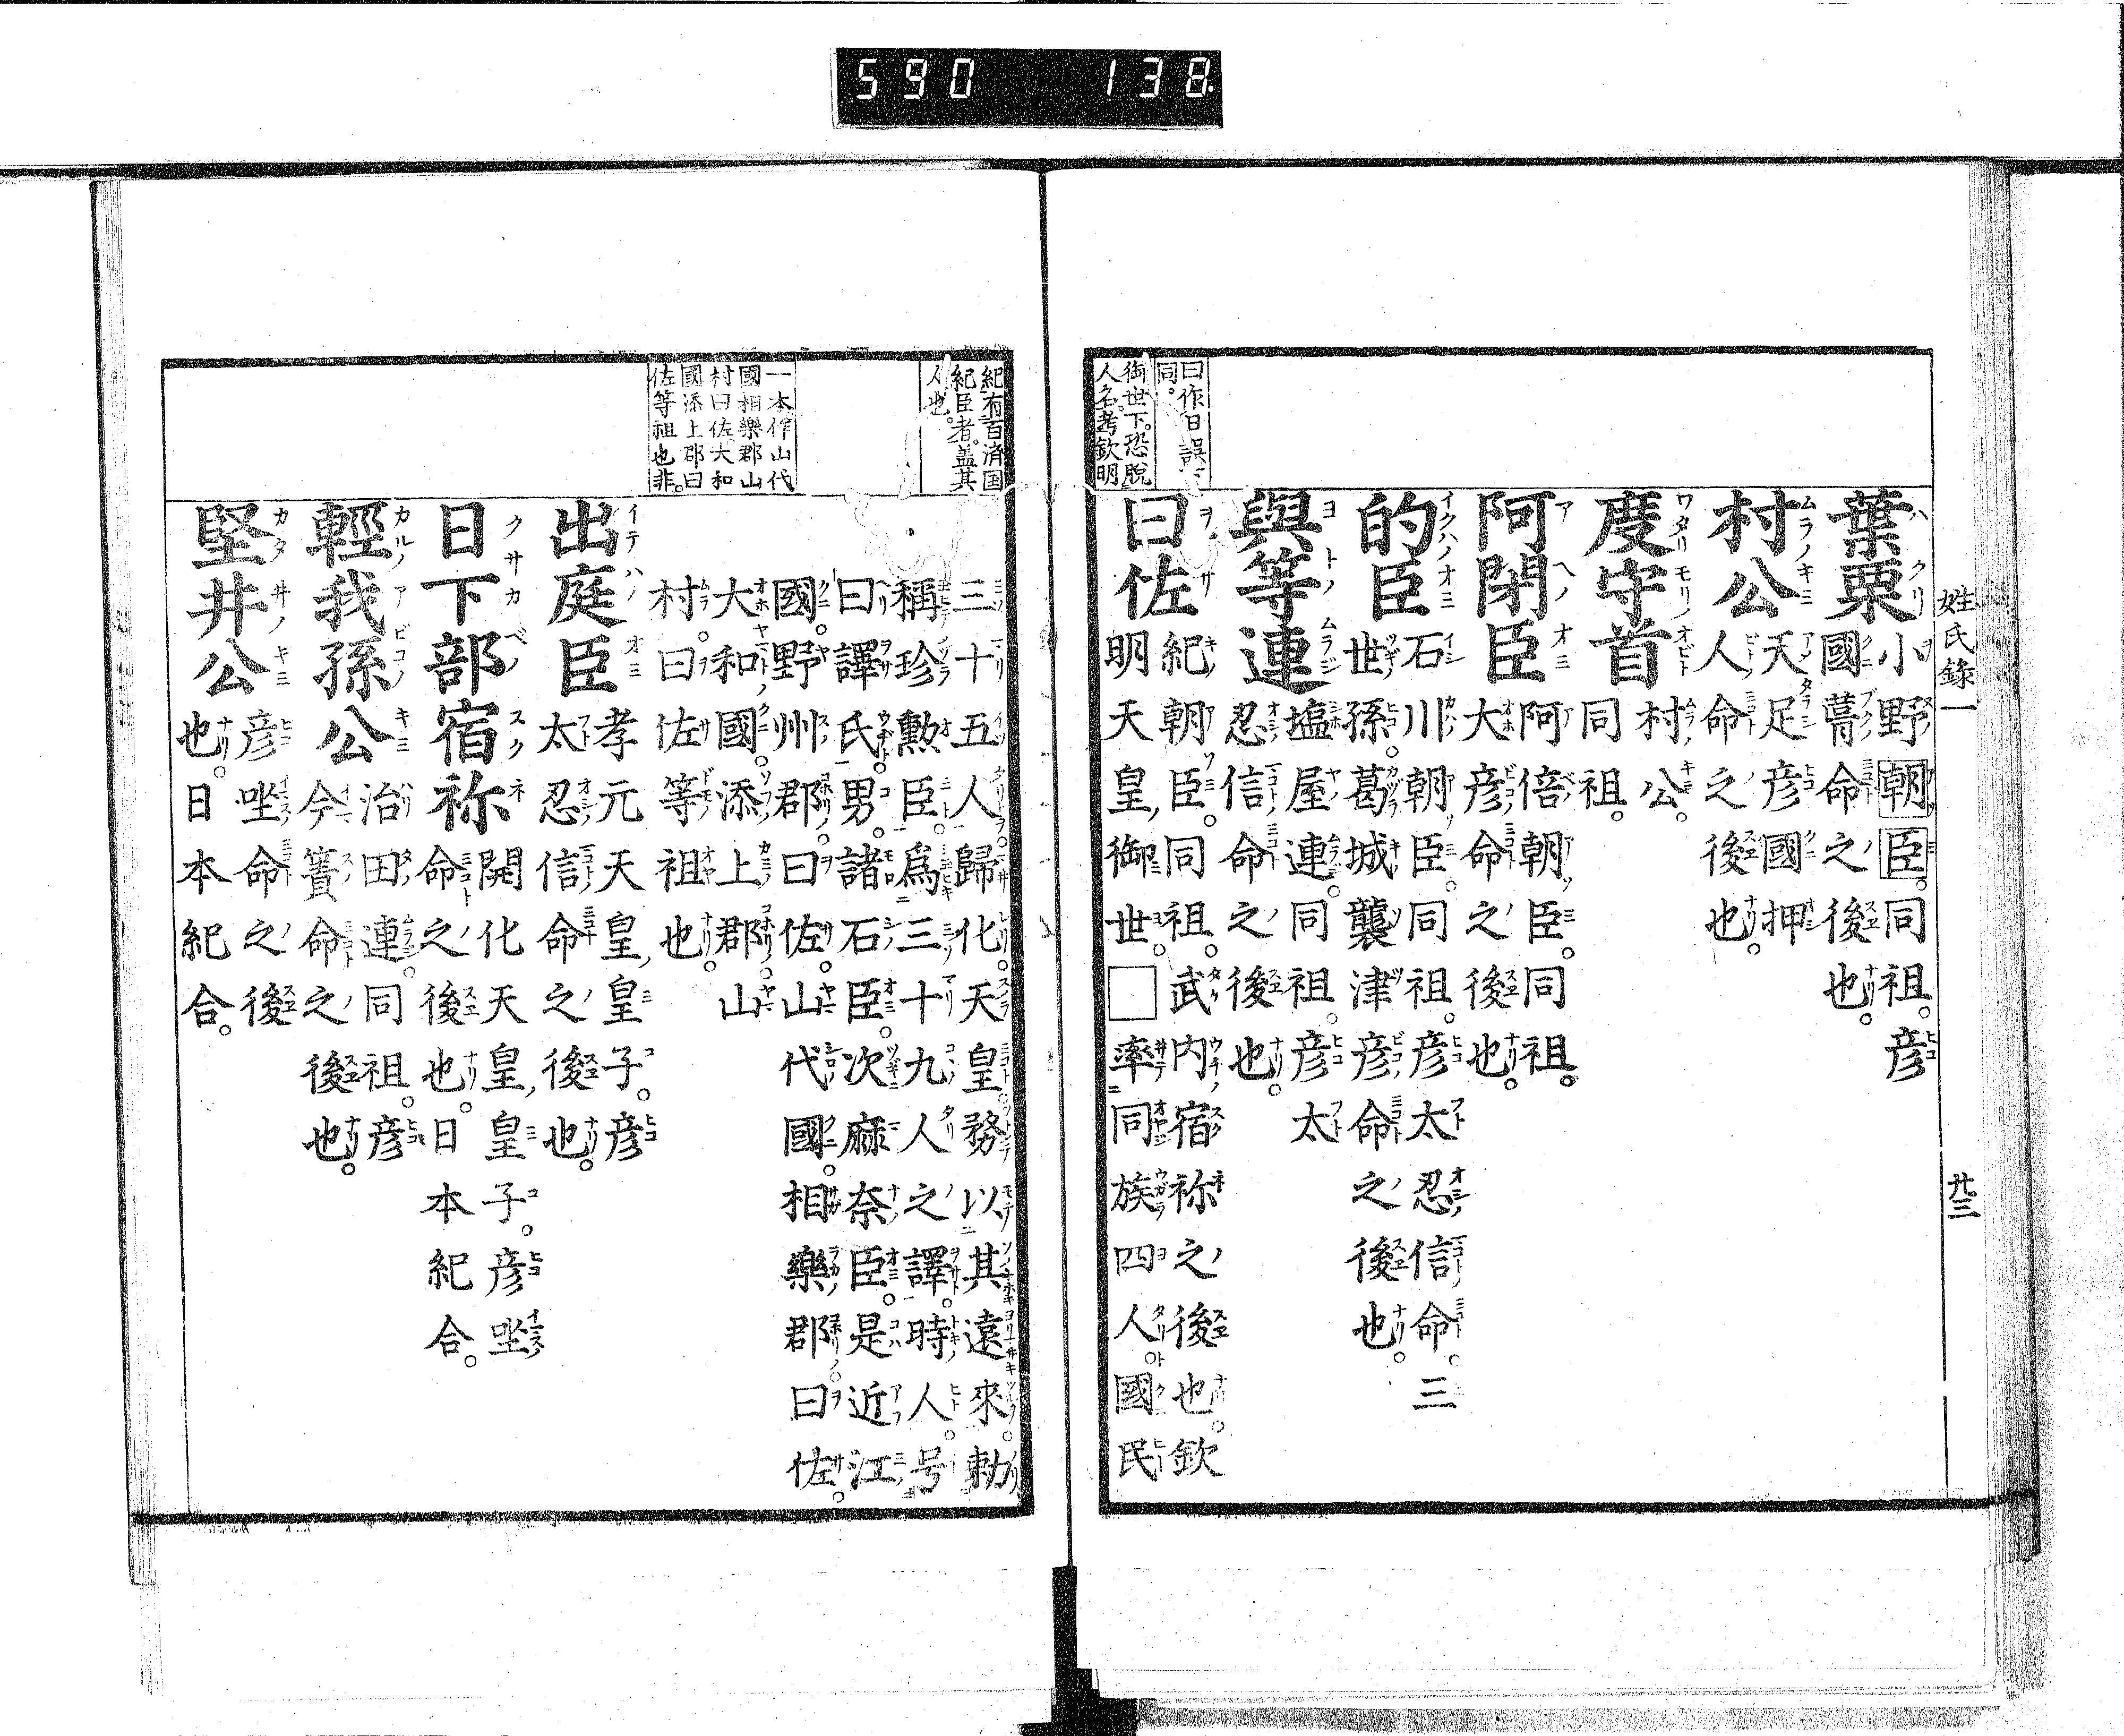 590 138
姓氏錄一
廿三
曰作日誤下
同。
御世下。恐脫
人名。考欽明
葉栗
小野朝臣。同祖。彥
國葺命之後也。
村公
天足彥國押
人命之後也。
度守首
村公。
同祖。
阿閉臣
阿倍朝臣。同祖。
大彥命之後也。
的臣
石川朝臣。同祖。彥太忍信命。三
世孫。葛城襲津彥命之後也。
與等連
塩屋連。同祖。彥太
忍信命之後也。
曰佐
紀朝臣。同祖。武內宿祢之後也。欽
明天皇御世。□率同族四人。國民
紀有百済国
紀臣者。蓋其
人也。
一本作山代
國相樂郡山
村曰佐。大和
國添上郡曰
佐等祖也非。
三十五人歸化。天皇務以其遠來。勅
稱珍勲臣。爲三十九人之譯。時人。号
曰譯氏。男。諸石臣。次麻奈臣。是近江
國。野州郡。曰佐。山代國。相樂郡。曰佐。
大和國。添上郡。山
村。曰佐等祖也。
出庭臣
孝元天皇皇子。彥
太忍信命之後也。
日下部宿祢
開化天皇皇子。彥坐
命之後也。日本紀合。
輕我孫公
治田連。同祖。彥
今簀命之後也。
堅井公
彥坐命之後
也。日本紀合。